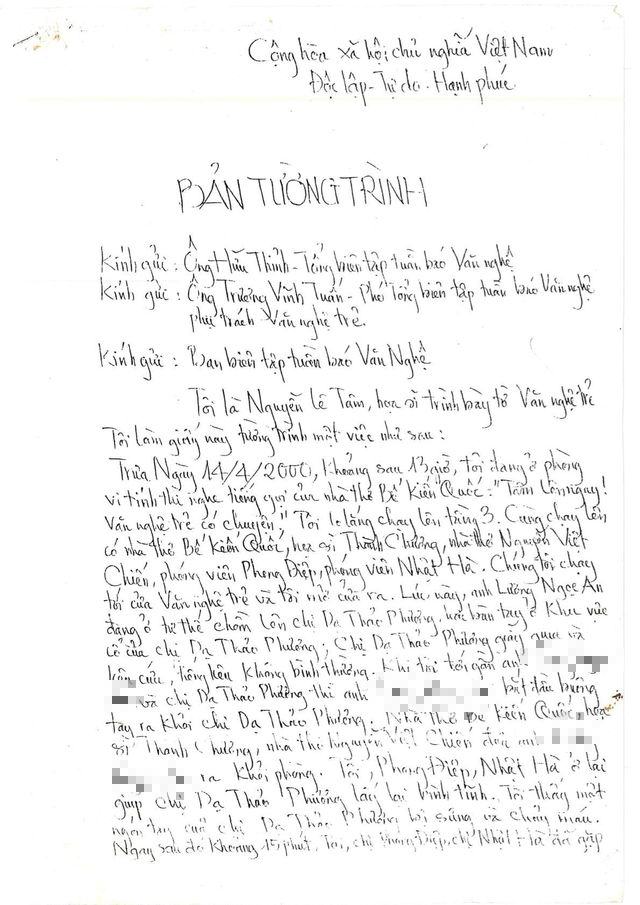 Cộng hòa xã hội chủ nghĩa Việt Nam
Độc lập - Tự do - Hạnh phúc
BẢN TƯỜNG TRÌNH
Kính gửi : Ông Hữu Thỉnh - Tổng biên tập tuần báo Văn nghệ
Kính gửi : Ông Trương Vĩnh Tuấn - Phó Tổng biên tập tuần báo Văn nghệ
phụ trách Văn nghệ trẻ.
Kính gửi : Ban biên tập tuần báo Văn Nghệ
Tôi là Nguyễn Lê Tâm, họa sĩ trình bày tờ Văn nghệ trẻ
Tôi làm giấy này tường trình một việc như sau :
Trưa Ngày 14/4/2000, Khoảng sau 13 giờ, tôi đang ở phòng
vi tính thì nghe tiếng gọi của nhà thơ Bế Kiến Quốc : "Tâm lên ngay!
Văn nghệ trẻ có chuyện" Tôi lo lắng chạy lên tầng 3. Cùng chạy lên
có nhà thơ Bế Kiến Quốc, họa sĩ Thành Chương, nhà thơ Nguyễn Việt
Chiến, phóng viên Phong Điệp, phóng viên Nhật Hà. Chúng tôi chạy
tới cửa Văn nghệ trẻ và tôi mở cửa ra. Lúc này, anh Lương Ngọc An
đang ở tư thế chồm lên chị Dạ Thảo Phương, hai bàn tay ở Khu vực
cổ của chị Dạ Thảo Phương; Chị Dạ Thảo Phương giãy giụa và
kêu cứu, tiếng kêu không bình thường. Khi tôi tới gần anh
và chị Dạ Thảo Phương thì anh bắt đầu buông
tay ra khỏi chị Dạ Thảo Phương. Nhà thơ Bế Kiến Quốc, họa
sĩ Thành Chương, nhà thơ Nguyễn Việt Chiến đưa anh
ra Khỏi phòng. Tôi, Phong Điệp, Nhật Hà ở lại
giúp chị Dạ Thảo Phương lấy lại bình tĩnh. Tôi thấy một
ngón tay của chị Dạ Thảo Phương bị sưng và chảy máu.
Ngay sau đó khoảng 15 phút, Tôi, chị Phong Điệp, chị Nhật Hà đã gặp